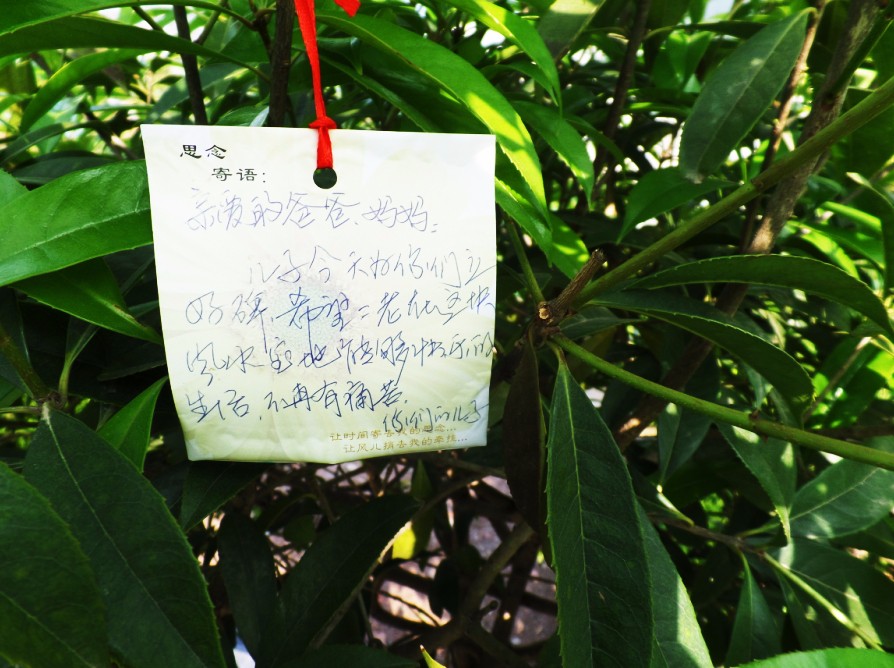 思念
寄语：
亲爱的爸爸、妈妈：
儿子今天为你们立
好碑，希望二老在这块
风水宝地 快乐的
生活，不再有痛苦。
你们的儿子
让时间寄去我的思念...
让风儿捎去我的牵挂...